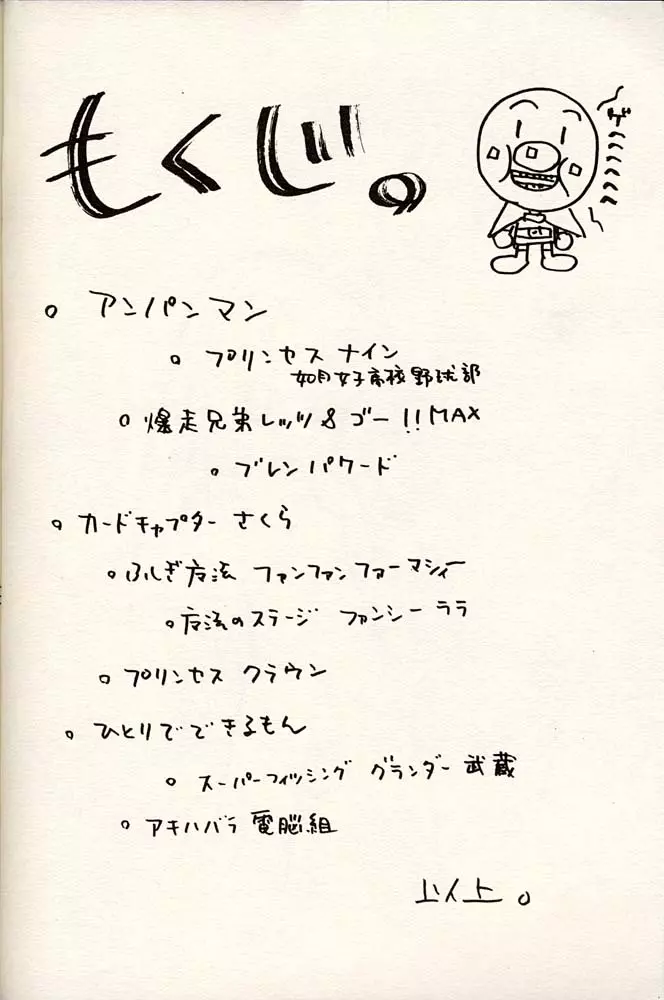 もくじ。
ゲへへへへへ
○ アンパンマン
○ プリンセス ナイン
如月女子高校野球部
○ 爆走兄弟レッツ&ゴー!!MAX
○ ブレンパワード
○ カードキャプター さくら
○ ふしぎ广法 ファンファンファーマシィー
○ 广法のステージ ファンシー ララ
○ プリンセス クラウン
○ ひとりでできるもん
○ スーパーフィッシング グランダー 武蔵
○ アキハバラ 電脳組
以上。